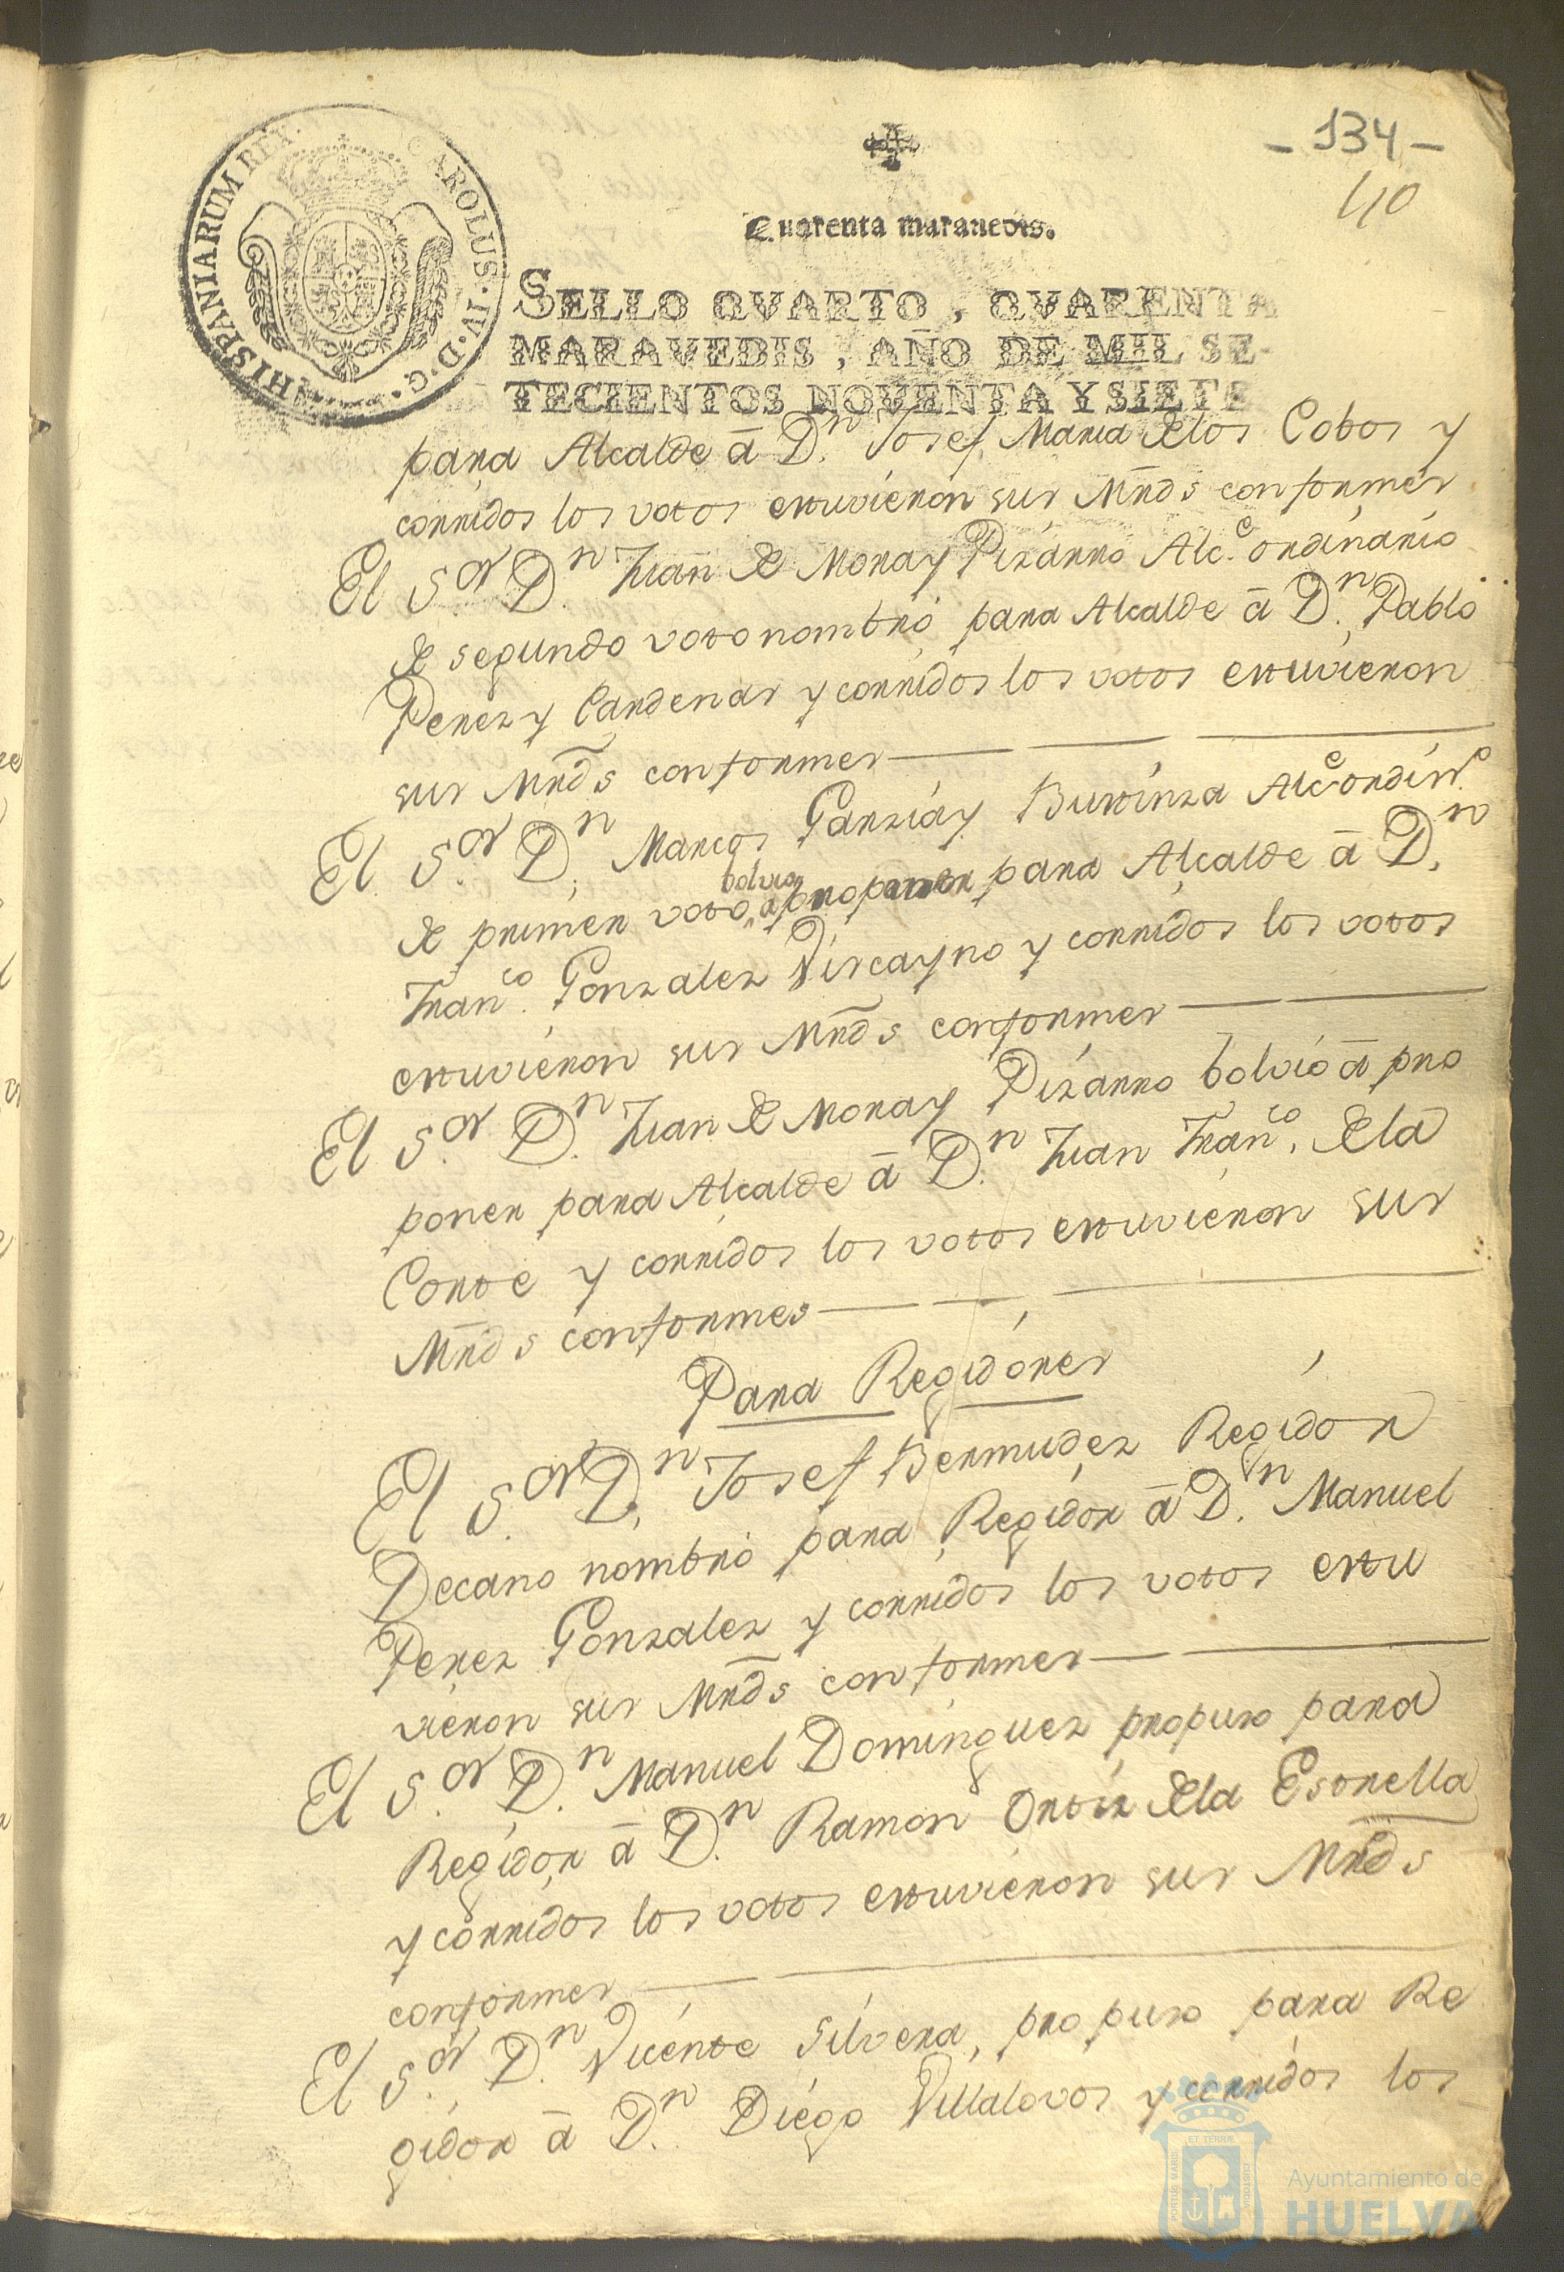 - 134 -
40
CAROLUS·IV·D·G· HISPANIARUM REX·
Quarenta maravedis.
SELLO QVARTO, QVARENTA
MARAVEDIS, AÑO DE MIL SE-
TECIENTOS NOVENTA Y SIETE
para Alcalde â Dn. Josef Maria delos Cobos y
corridos los votos estuvieron sus Mrds conformes
El Sor. Dn. Juan de Mora y Pizarro Alce. ordinario
de segundo voto nombró para Alcalde â Dn. Pablo
Perez y Cardenas y corridos los votos estuvieron
sus Mrds conformes
El Sor. Dn. Marcos Garzia y Bustinza Alce. ordinro.
bolvio
de primer voto â proponer para Alcalde â Dn.
Franco. Gonzalez Viscayno y corridos los votos
estuvieron sus Mrds conformes
El Sor. Dn. Juan de Mora y Pizarro bolvió â pro
poner para Alcalde â Dn. Juan Franco. dela
Corte y corridos los votos estuvieron sus
Mrds conformes
Para Regidóres
El Sor. Dn. Josef Bermudez Regidor
Decano nombró para Regidor â Dn. Manuel
Perez Gonzalez y corridos los votos estu
vieron sus Mrds conformes
El Sor. Dn. Manuel Dominguez propuso para
Regidor â Dn. Ramon Ortiz dela Estrella
y corridos los votos estuvieron sus Mrds
conformes
El Sor. Dn. Vicente Silvera, propuso para Re
gidor â Dn. Diego Villalovos y corridos los
Ayuntamiento de
HUELVA